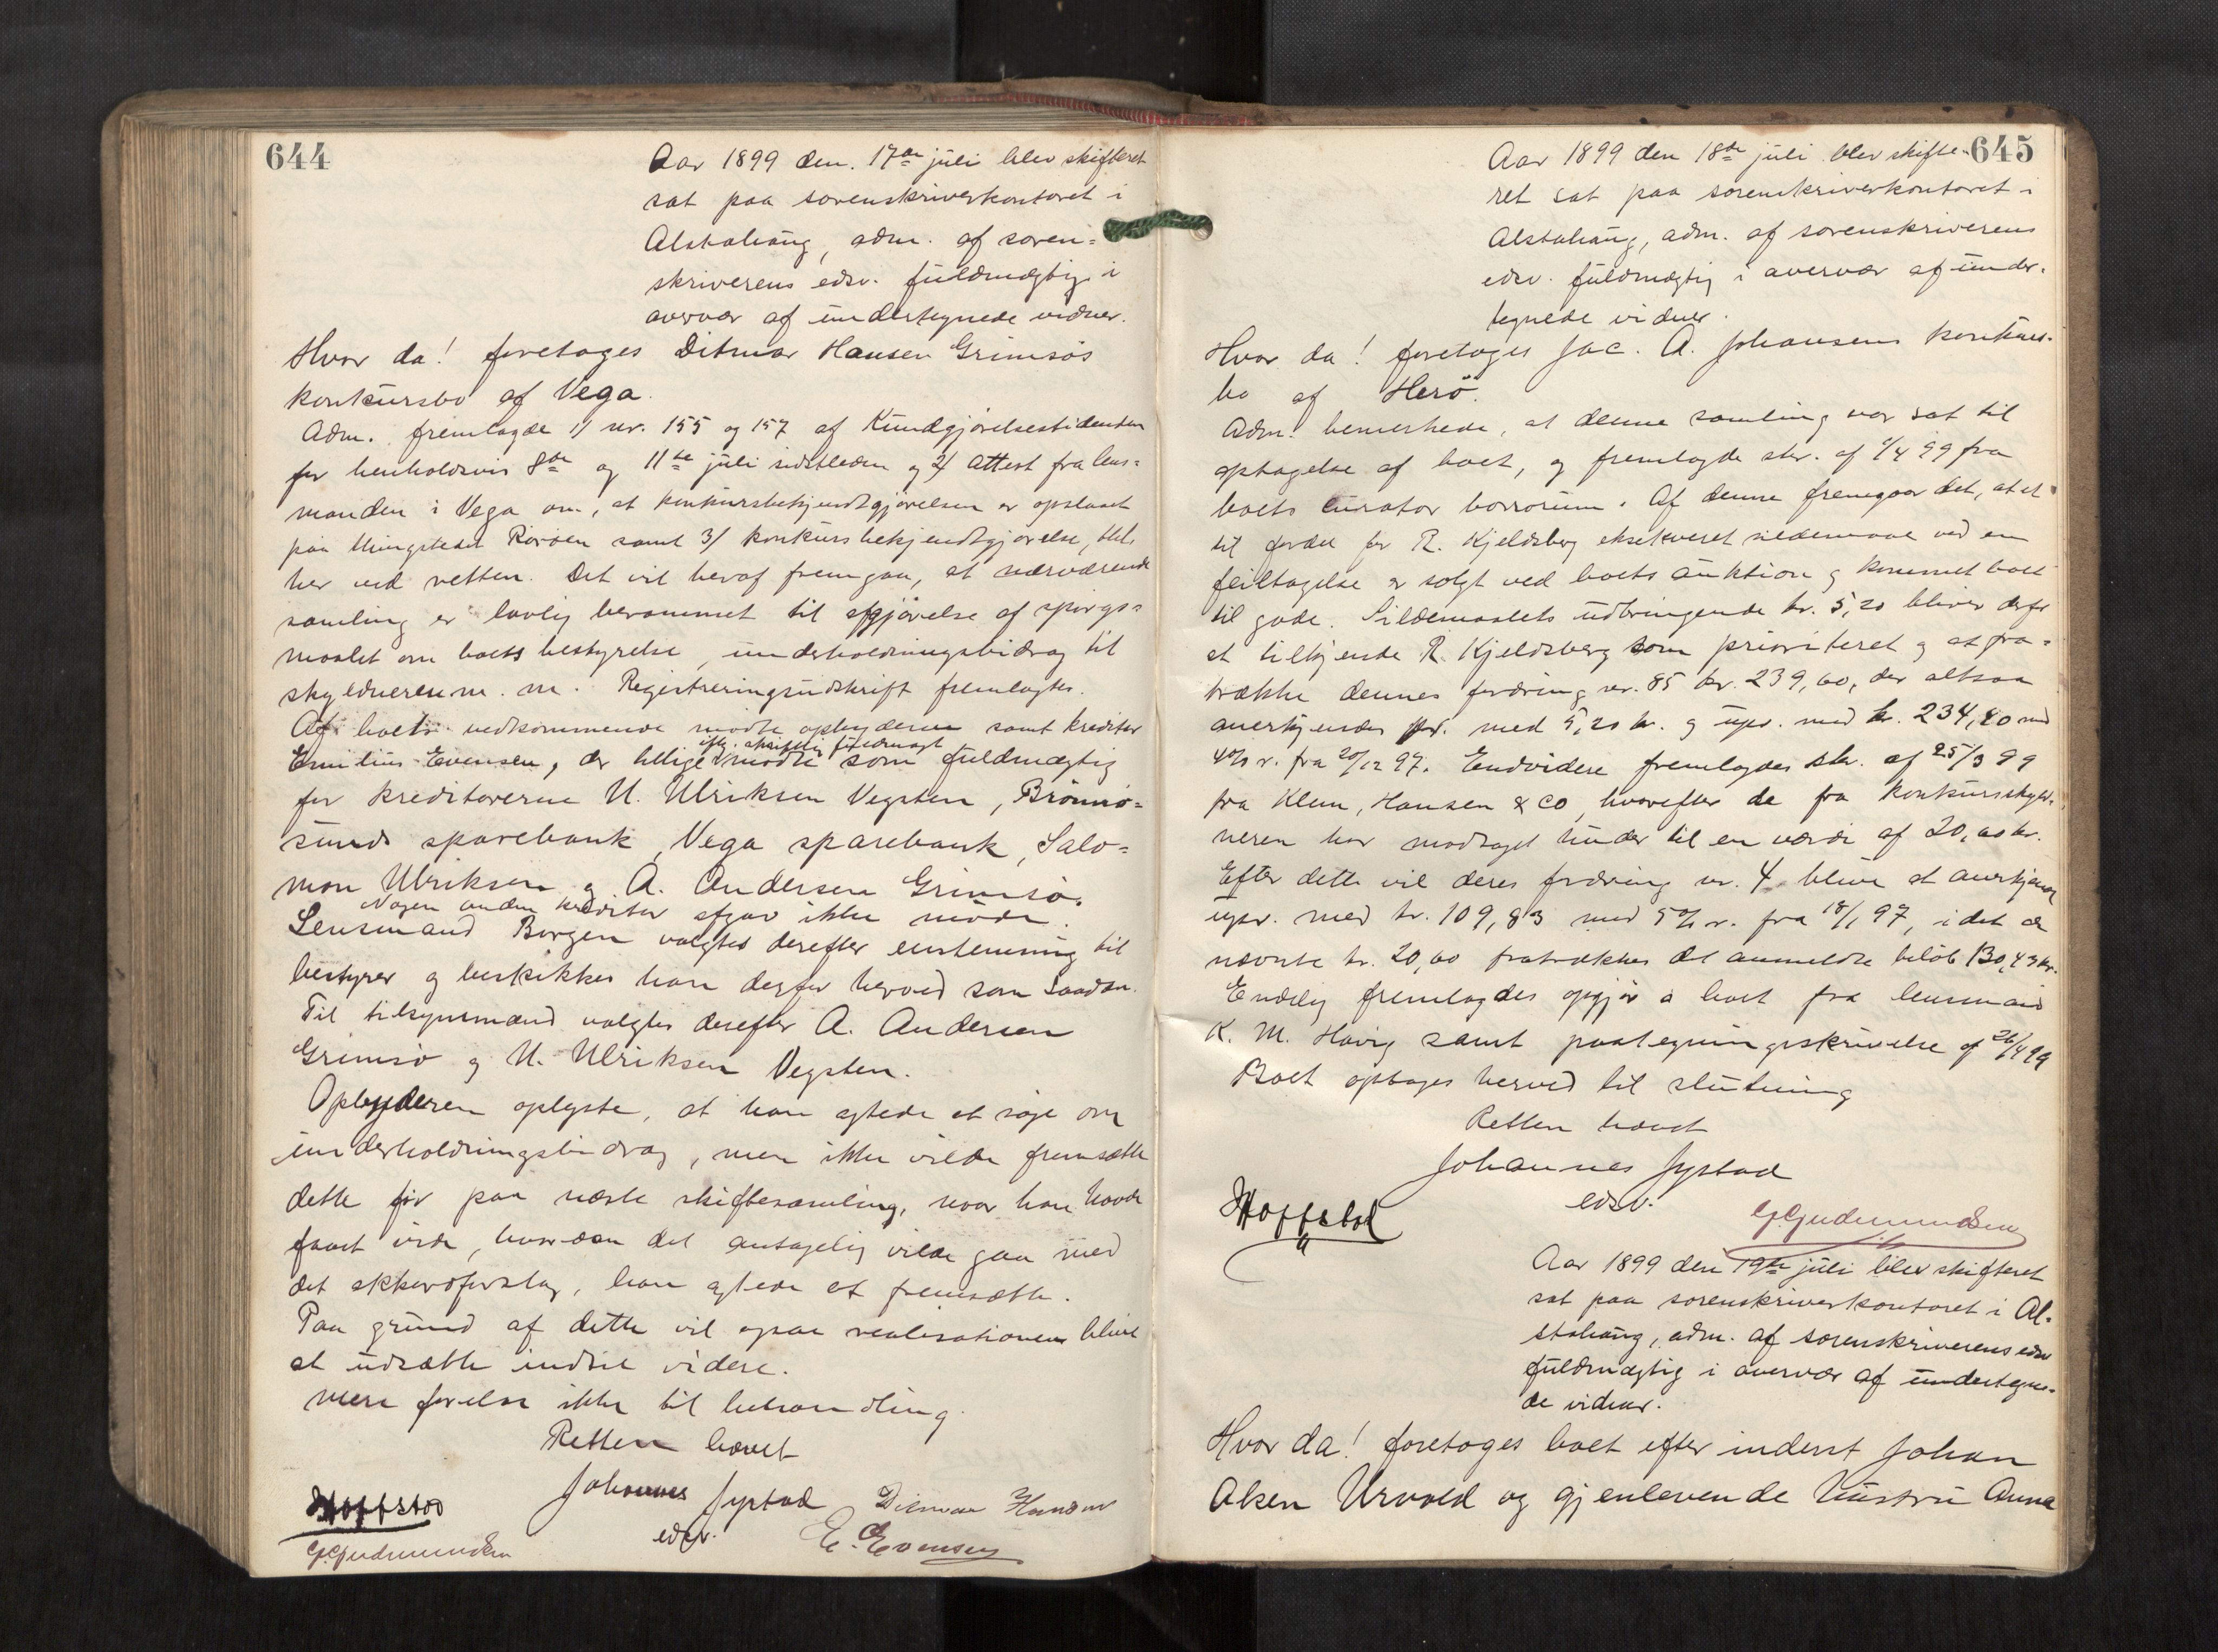 644
Aar 1899 den. 17de juli blev skifteret
sat paa sorenskriverkontoret i
Alstahaug, adm. af soren=
skriverens edsv. fuldmægtig i
overvær af undertegnede vidner.
Hvor da! foretages Ditmar Hansen Grimsøs
konkursbo af Vega.
Adm. fremlagde 1/ nr. 155 og 157 af Kundgjørelsestidenden
for henholdsvis 8de og 11te juli sidstleden og 2/ Attest fra lens=
manden i Vega om, at konkursbekjendtgjørelsen er opslaaet
paa thingstedet Rørøen samt 3/ konkursbekjendtgjørelse,
her ved retten. Det vil heraf fremgaa, at nærværende
samling er lovlig berammet til afgjørelse af spørgs=
maalet om boets bestyrelse, underholdningsbidrag til
skyldneren m. m. Registreringsudskrift fremlagtes.
Af boets vedkommende mødte opbyderen samt kreditor
Emilius Evensen, der tillige iflg. skriftlig fuldmagt mødte som fuldmægtig
for kreditorerne U. Ulriksen Vegsten, Brønnø=
sunds sparebank, Vega sparebank, Salo=
mon Ulriksen og A. Andersen Grimsø.
Nogen anden kreditor afgav ikke møde.
Lensmand Borgen valgtes derefter enstemmig til
bestyrer og beskikkes han derfor herved som saadan.
Til tilsynsmænd valgtes derefter A. Andersen
Grimsø og U. Ulriksen Vegsten.
Opbyderen oplyste, at han agtede at søge om
underholdningsbidrag, men ikke vilde fremsætte
dette før paa næste skiftesamling, naar han havde
faaet vide, hvordan det antagelig vilde gaa med
det akkordforslag, han agtede at fremsætte.
Paa grund af dette vil ogsaa realisationen blive
at udsætte indtil videre.
Mere forelaa ikke til behandling.
Retten hævet
Johannes Jystad
edsv.
Ditmar Hansen
E. Evensen
Hoffstad
G. Gudmundsen
645
Aar 1899 den 18de juli blev skifte=
ret sat paa sorenskriverkontoret i
Alstahaug, adm. af sorenskriverens
edsv. fuldmægtig i overvær af under=
tegnede vidner.
Hvor da! foretages Jac. A. Johansens konkurs=
bo af Herø.
Adm. bemerkede, at denne samling var sat til
optagelse af boet, og fremlagde skr. af /4 99 fra
boets curator bonorum. Af denne fremgaar det, at et
til fordel for R. Kjeldsberg eksekveret sildemaal ved en
feiltagelse er solgt ved boets auktion og kommet boet
til gode. Sildemaalets udbringende kr. 5,20 bliver derfor
at tilkjende R. Kjeldsberg som prioriteret og at fra=
trække dennes fordring nr. 85 kr. 239,60, der altsaa
anerkjendes med 5,20 kr. og upr. med kr. 234,40 med
4% r. fra 20/12 97. Endvidere fremlagdes skr. af 25/3 99
fra Klem, Hansen & Co, hvorefter de fra konkursskyld=
neren har modtaget huder til en værdi af 20,60 kr.
Efter dette vil deres fordring nr. 4 blive at anerkjende
upr. med kr. 109,83 med 5% r. fra 18/1 97, idet de
nævnte kr. 20,60 fratrækkes det anmeldte beløb 130,43 kr.
Endelig fremlagdes opgjør i boet fra lensmand
K. M. Havig samt paategningsskrivelse af 26/4 99
Boet optages herved til slutning
Retten hævet
Johannes Jystad
edsv.
Hoffstad
G. Gudmundsen
Aar 1899 den 19de juli blev skifteret
sat paa sorenskriverkontoret i Al=
stahaug, adm. af sorenskriverens edsv
fuldmægtig i overvær af undertegne=
de vidner.
Hvor da! foretages boet efter inderst Johan
Olsen Urvold og gjenlevende hustru Anna